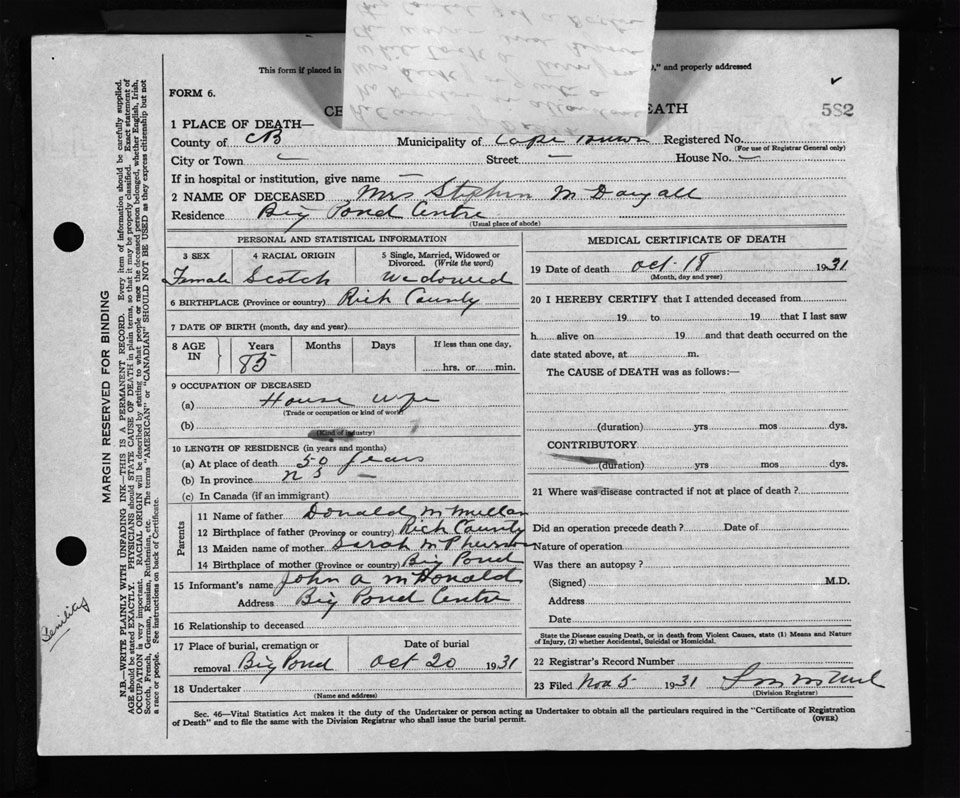 This form if placed in
," and properly addressed
FORM 6.
CE
DEATH
582
1 PLACE OF DEATH—
County of CB Municipality of Cape Registered No.
(For use of Registrar General only)
City or Town — Street — House No. —
If in hospital or institution, give name —
2 NAME OF DECEASED Mrs Stephen
Residence Big Pond Centre
(Usual place of abode)
PERSONAL AND STATISTICAL INFORMATION
3 SEX 4 RACIAL ORIGIN 5 Single, Married, Widowed or Divorced. (Write the word)
Female Scotch Wedowed
6 BIRTHPLACE (Province or country) Rich County
7 DATE OF BIRTH (month, day and year)
8 AGE IN Years Months Days If less than one day,
85 hrs. or min.
9 OCCUPATION OF DECEASED
(a) House Wife
(Trade or occupation or kind of work)
(b)
(Kind of industry)
10 LENGTH OF RESIDENCE (in years and months)
(a) At place of death 50 years
(b) In province N S —
(c) In Canada (if an immigrant)
Parents
11 Name of father Donald McMullan
12 Birthplace of father (Province or country) Rich County
13 Maiden name of mother Sarah
14 Birthplace of mother (Province or country) Big Pond
15 Informant's name John A McDonald
Address Big Pond Centre
16 Relationship to deceased
17 Place of burial, cremation or Date of burial
removal Big Pond Oct 20 1931
18 Undertaker
(Name and address)
MEDICAL CERTIFICATE OF DEATH
19 Date of death Oct-18 1931
(Month, day and year)
20 I HEREBY CERTIFY that I attended deceased from
19 to 19 that I last saw
h alive on 19 and that death occurred on
date stated above, at m.
The CAUSE of DEATH was as follows:—
(duration) yrs mos dys.
CONTRIBUTORY
(duration) yrs mos dys.
21 Where was disease contracted if not at place of death?
Did an operation precede death? Date of
Nature of operation
Was there an autopsy?
(Signed) M.D.
Address
Date
State the Disease causing Death, or in death from Violent Causes, state (1) Means and Nature
of Injury, (2) whether Accidental, Suicidal or Homicidal.
22 Registrar's Record Number
23 Filed Nov 5 1931
(Division Registrar)
Sec. 46—Vital Statistics Act makes it the duty of the Undertaker or person acting as Undertaker to obtain all the particulars required in the "Certificate of Registration
of Death" and to file the same with the Division Registrar who shall issue the burial permit. (OVER)
MARGIN RESERVED FOR BINDING
N.B.—WRITE PLAINLY WITH UNFADING INK—THIS IS A PERMANENT RECORD. Every item of information should be carefully supplied.
AGE should be stated EXACTLY. PHYSICIANS should STATE CAUSE OF DEATH in plain terms, so that it may be properly classified. Exact statement of
OCCUPATION is very important. RACIAL ORIGIN will be described by stating to what people or race the deceased person belonged, whether English, Irish,
Scotch, French, German, Russian, Ruthenian, etc. The terms "AMERICAN" or "CANADIAN" SHOULD NOT BE USED as they express citizenship but not
a race or people. See instructions on back of Certificate.
Senility